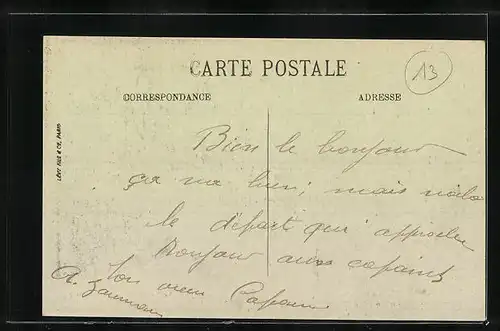 CARTE POSTALE
13
CORRESPONDANCE
ADRESSE
LÉVY FILS & CIE, PARIS
Bien le bonjour
ça va bien; mais voila
le départ qui approche
Bonjour aux copains
Ton vieux Copain
A.